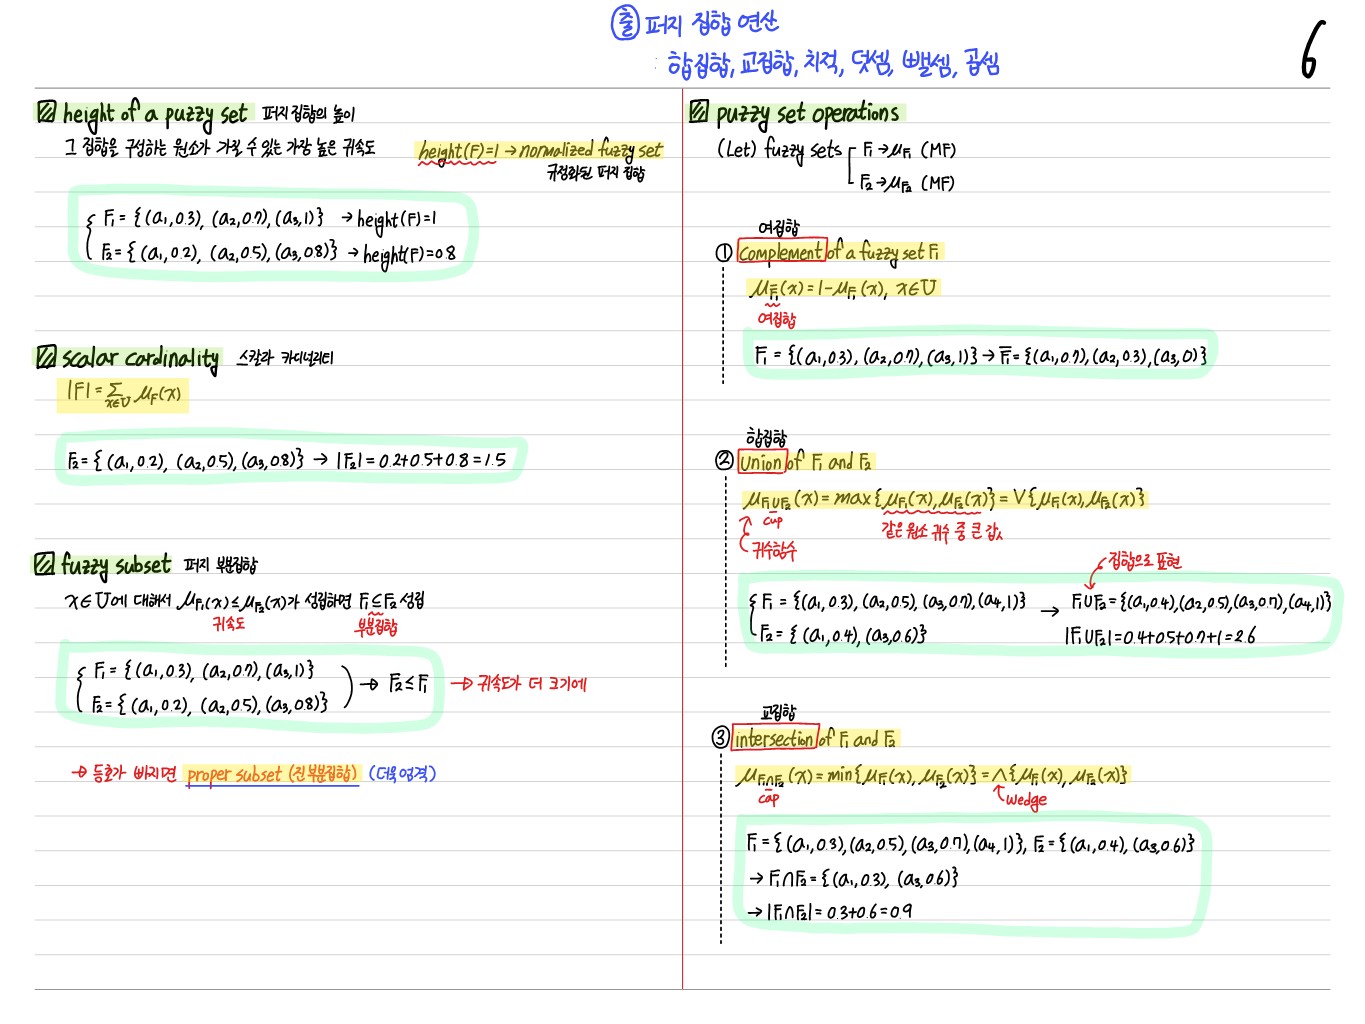 출 퍼지 집합 연산
: 합집합, 교집합, 치적, 덧셈, 뺄셈, 곱셈
6
height of a puzzy set 퍼지 집합의 높이
그 집합을 구성하는 원소가 가질 수 있는 가장 높은 귀속도
height(F)=1 → normalized fuzzy set
규정화된 퍼지 집합
F₁ = {(a₁,0.3), (a₂,0.7), (a₃,1)} → height(F)=1
F₂ = {(a₁,0.2), (a₂,0.5), (a₃,0.8)} → height(F)=0.8
scalar cardinality 스칼라 카디널리티
|F| = ∑x∈U μF(x)
F₂ = {(a₁,0.2), (a₂,0.5), (a₃,0.8)} → |F₂| = 0.2+0.5+0.8=1.5
fuzzy subset 퍼지 부분집합
x∈U에 대해서 μF₁(x)≤μF₂(x)가 성립하면 F₁⊆F₂ 성립
귀속도 부분집합
F₁ = {(a₁,0.3), (a₂,0.7), (a₃,1)}
F₂ = {(a₁,0.2), (a₂,0.5), (a₃,0.8)}
→ F₂≤F₁ → 귀속도가 더 크기에
→ 등호가 빠지면 proper subset (진부분집합) (더욱 엄격)
puzzy set operations
(Let) fuzzy sets F₁→μF₁ (MF)
F₂→μF₂ (MF)
여집합
① complement of a fuzzy set F₁
μF̅₁(x)=1-μF₁(x), x∈U
여집합
F₁ = {(a₁,0.3), (a₂,0.7), (a₃,1)} → F̅₁={(a₁,0.7), (a₂,0.3), (a₃,0)}
합집합
② Union of F₁ and F₂
μF₁∪F₂(x)=max{μF₁(x),μF₂(x)}=∨{μF₁(x),μF₂(x)}
cup 같은 원소 귀수 중 큰 값
귀수함수
집합으로 표현
F₁ = {(a₁,0.3), (a₂,0.5), (a₃,0.7), (a₄,1)} → F₁∪F₂={(a₁,0.4),(a₂,0.5),(a₃,0.7),(a₄,1)}
F₂ = {(a₁,0.4), (a₃,0.6)} |F₁∪F₂|=0.4+0.5+0.7+1=2.6
교집합
③ intersection of F₁ and F₂
μF₁∩F₂(x)=min{μF₁(x),μF₂(x)}=∧{μF₁(x),μF₂(x)}
cap wedge
F₁={(a₁,0.3),(a₂,0.5),(a₃,0.7),(a₄,1)}, F₂={(a₁,0.4),(a₃,0.6)}
→ F₁∩F₂={(a₁,0.3), (a₃,0.6)}
→ |F₁∩F₂|= 0.3+0.6=0.9